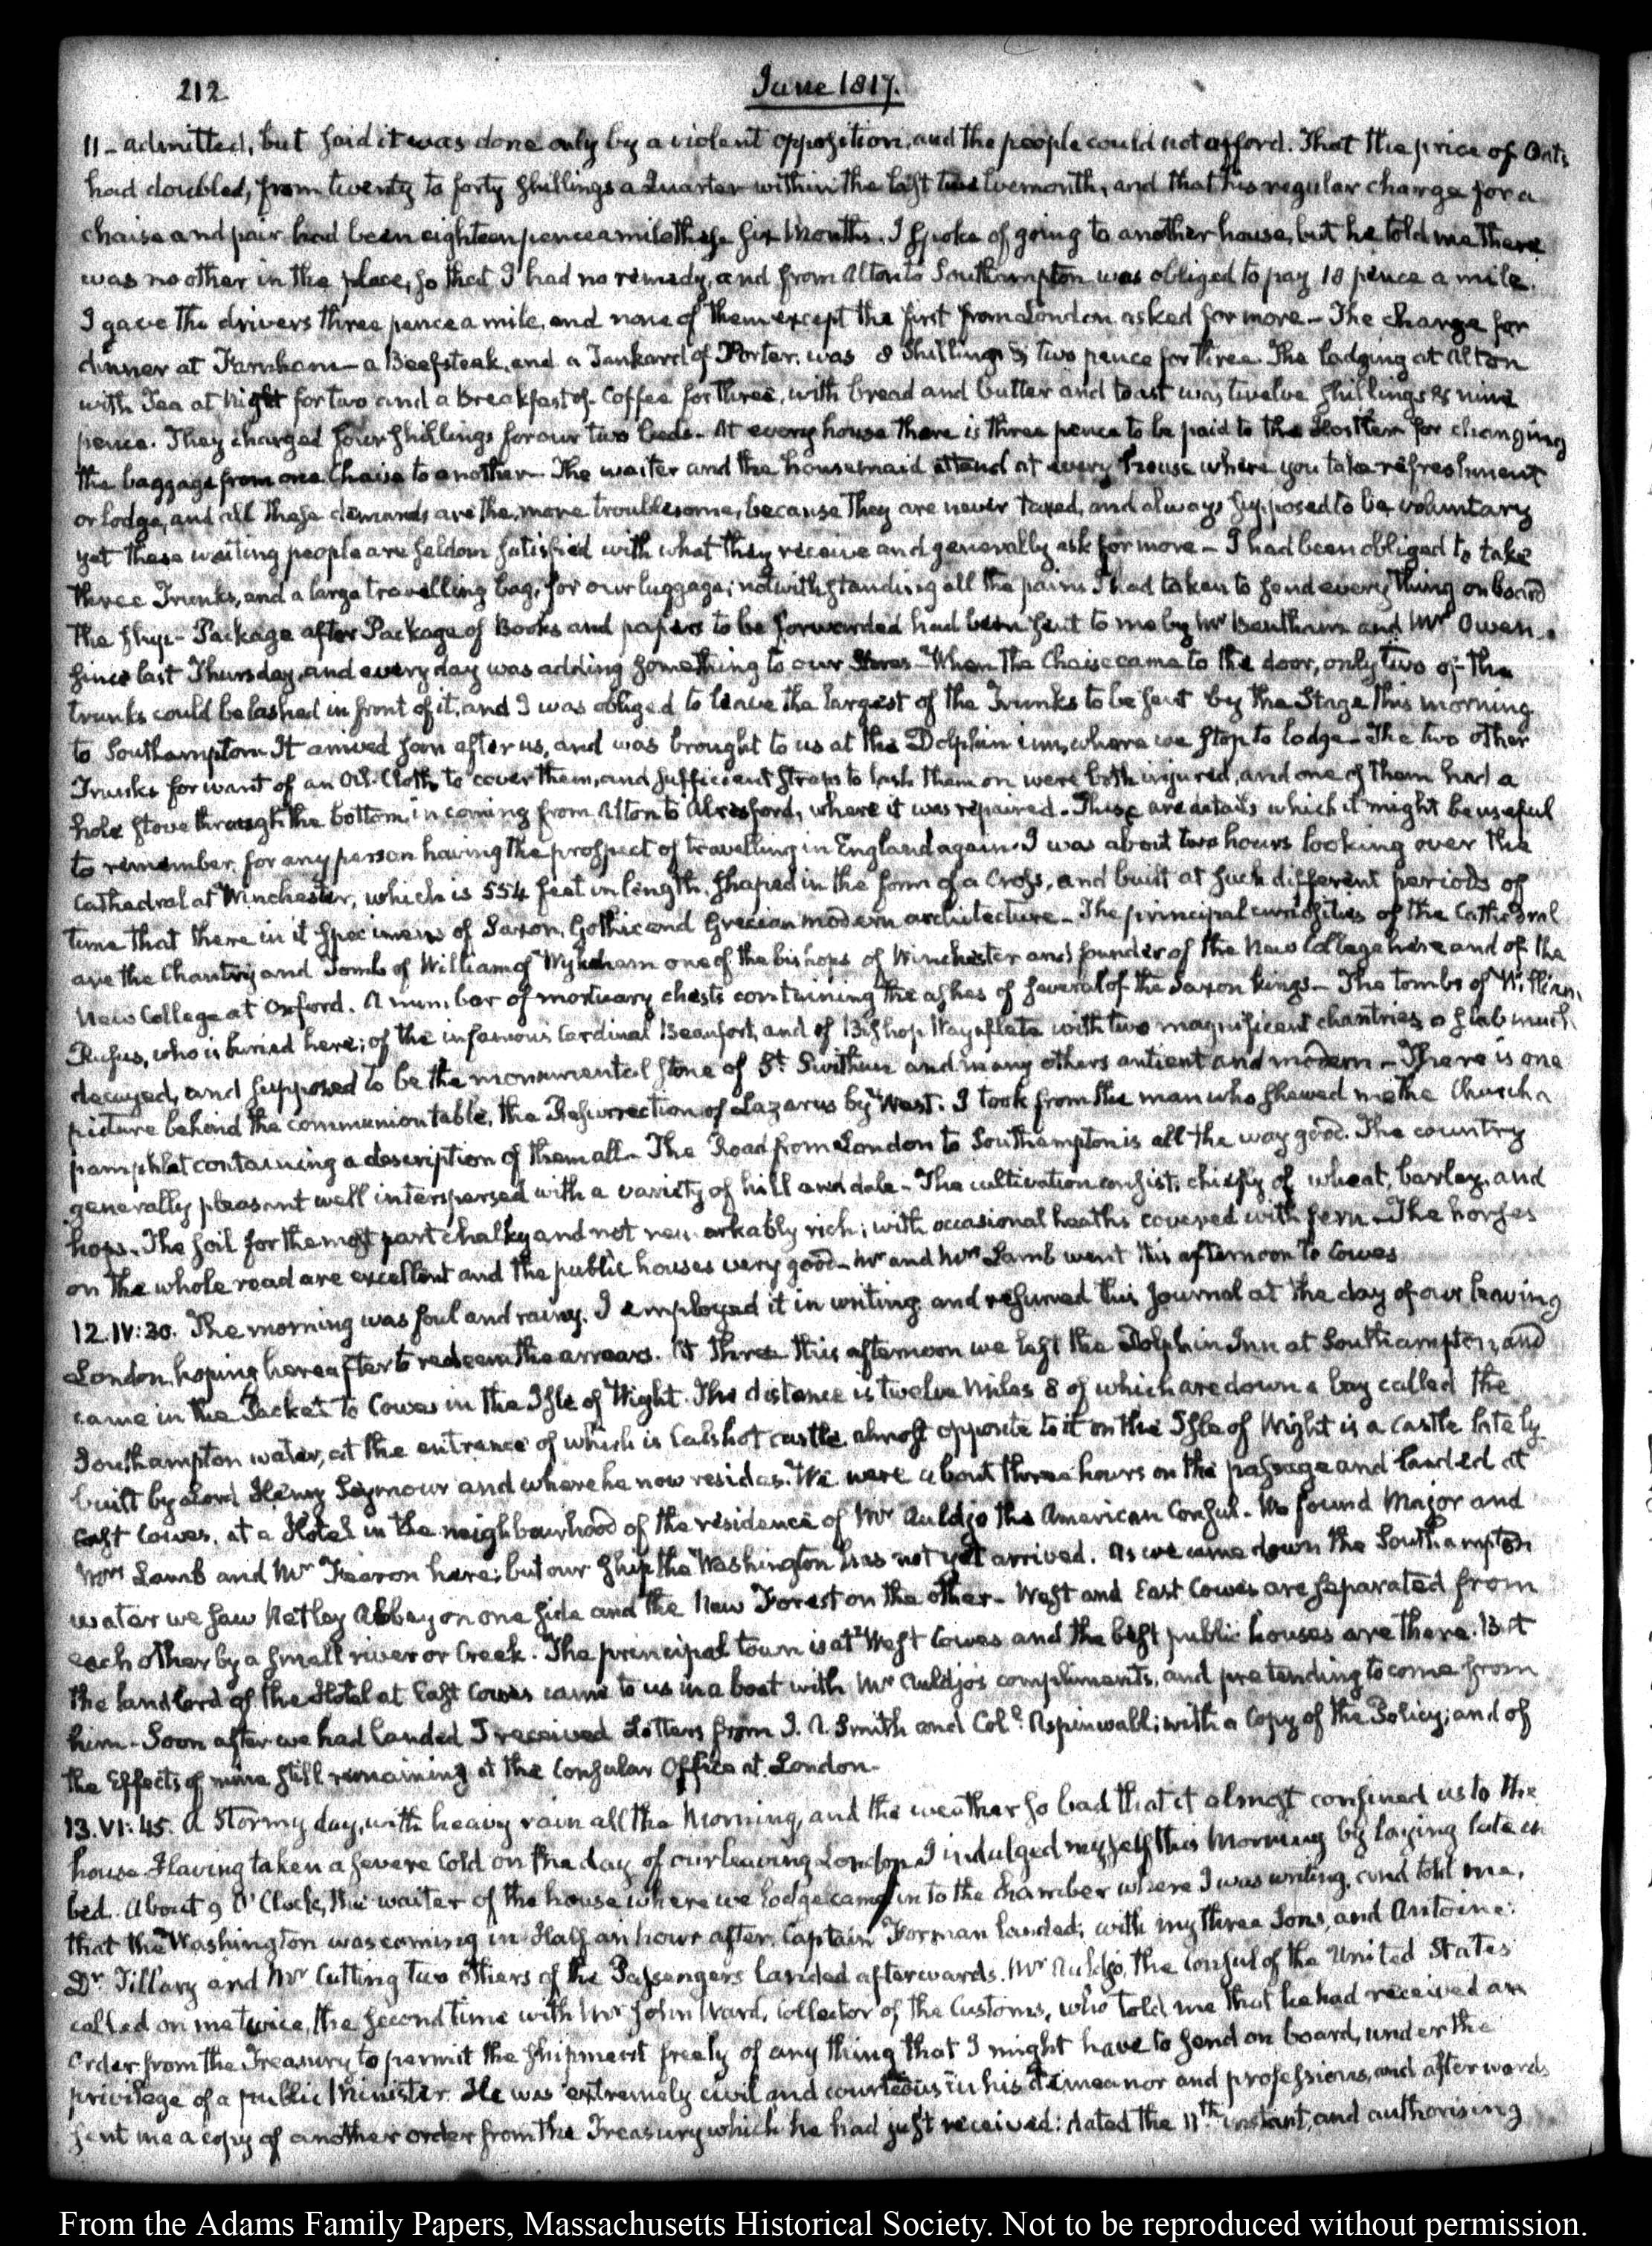 212
June 1817.
11 - admitted, but said it was done only by a violent opposition, and the people could not afford. That the price of Oats
had doubled, from twenty to forty shillings a Quarter within the last twelvemonth, and that his regular charge for a
chaise and pair had been eighteen pence a mile these six Months. I spoke of going to another house, but he told me there
was no other in the place, so that I had no remedy, and from Alton to Southampton was obliged to pay 18 pence a mile.
I gave the drivers three pence a mile, and none of them except the first from London asked for more - The charge for
dinner at Farnham - a Beefsteak, and a Tankard of Porter, was 8 Shillings & two pence for three. The lodging at Alton
with Tea at Night for two and a Breakfast of Coffee for three, with bread and butter and toast was twelve shillings & nine
pence. They charged four shillings for our two beds - At every house there is three pence to be paid to the Hostler for changing
the baggage from one Chaise to another - The waiter and the housemaid attend at every house where you take refreshment
or lodge, and all these demands are the more troublesome, because they are never taxed, and always supposed to be voluntary
yet these waiting people are seldom satisfied with what they receive and generally ask for more - I had been obliged to take
three Trunks, and a large travelling bag, for our luggage; notwithstanding all the pains I had taken to send every thing on board
the ship - Package after Package of Books and papers to be forwarded had been sent to me by Mr Bentham and Mr Owen,
since last Thursday, and every day was adding something to our Stores - When the Chaise came to the door, only two of the
trunks could be lashed in front of it, and I was obliged to leave the largest of the Trunks to be sent by the Stage this morning
to Southampton. It arrived soon after us, and was brought to us at the Dolphin inn, where we stop to lodge - The two other
Trunks for want of an Oil-Cloth to cover them, and sufficient straps to lash them on were both injured, and one of them had a
hole stove through the bottom, in coming from Alton to Alresford, where it was repaired. These are details which it might be useful
to remember, for any person having the prospect of travelling in England again. I was about two hours looking over the
Cathedral at Winchester, which is 554 feet in length, shaped in the form of a Cross, and built at such different periods of
time that there in it specimens of Saxon, Gothic and Grecian modern architecture - The principal curiosities of the Cathedral
are the Chantry and Tomb of William of Wykeham one of the bishops of Winchester and founder of the New College here and of the
New College at Oxford. A number of mortuary chests containing the ashes of several of the Saxon kings - The tombs of William
Rufus, who is buried here; of the infamous Cardinal Beaufort, and of Bishop Waynflete with two magnificent chantries, a slab much
decayed, and supposed to be the monumental stone of St. Swithun and many others antient and modern - There is one
picture behind the communion table, the Resurrection of Lazarus by West. I took from the man who shewed me the Church a
pamphlet containing a description of them all - The Road from London to Southampton is all the way good. The country
generally pleasant well interspersed with a variety of hill and dale - The cultivation consists chiefly of wheat, barley, and
hops. The soil for the most part chalky and not remarkably rich; with occasional heaths covered with fern - The horses
on the whole road are excellent and the public houses very good - Mr and Mrs Lamb went this afternoon to Cowes
12. IV:30. The morning was foul and rainy. I employed it in writing and resumed this Journal at the day of our leaving
London, hoping hereafter to redeem the arrears. At three this afternoon we left the Dolphin Inn at Southampton, and
came in the Packet to Cowes in the Isle of Wight. The distance is twelve Miles 8 of which are down a bay called the
Southampton water, at the entrance of which is Calshot castle, almost opposite to it on the Isle of Wight is a castle lately
built by Lord Henry Seymour and where he now resides. We were about three hours on the passage and landed at
East Cowes, at a Hotel in the neighbourhood of the residence of Mr Auldjo the American Consul - We found Major and
Mrs Lamb and Mr Fearon here; but our ship the Washington has not yet arrived. As we came down the Southampton
water we saw Netley Abbey on one side and the New Forest on the other - West and East Cowes are separated from
each other by a small river or Creek. The principal town is at West Cowes and the best public houses are there. But
the landlord of the Hotel at East Cowes came to us in a boat with Mr Auldjo's compliments, and pretending to come from
him - Soon after we had landed I received Letters from J. A. Smith and Coll. Aspinwall; with a Copy of the Policy; and of
the Effects of mine still remaining at the Consular Office at London -
13. VI:45. A Stormy day, with heavy rain all the Morning, and the weather so bad that it almost confined us to the
house. Having taken a severe cold on the day of our leaving London I indulged myself this Morning by laying late in
bed. About 9 O'Clock, the waiter of the house where we lodge came in to the chamber where I was writing, and told me,
that the Washington was coming in. Half an hour after, Captain Forman landed; with my three Sons, and Antoine:
Dr Tillary and Mr Cutting two others of the Passengers landed afterwards. Mr Auldjo, the Consul of the United States
called on me twice, the second time with Mr John Ward, Collector of the Customs, who told me that he had received an
Order from the Treasury to permit the shipment freely of any thing that I might have to send on board, under the
privilege of a public Minister. He was extremely civil and courteous in his demeanor and professions, and afterwards
sent me a copy of another order from the Treasury which he had just received: dated the 11th instant, and authorising
From the Adams Family Papers, Massachusetts Historical Society. Not to be reproduced without permission.